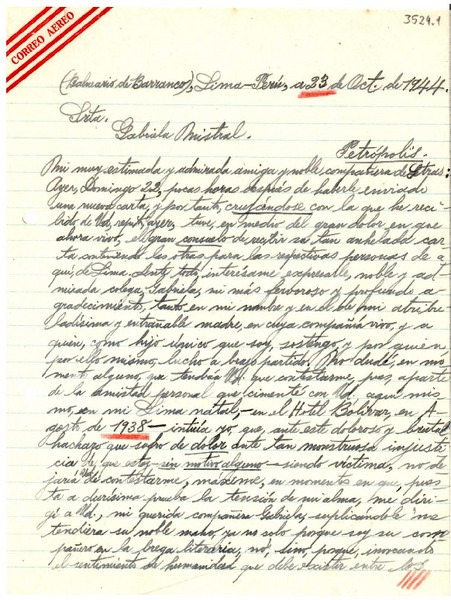 3524.1
CORREO AEREO
(Balneario de Barranco), Lima-Perú, a 23 de Oct. de 1944.
Srta.
Gabriela Mistral.
Petrópolis.
Mi muy estimada y admirada amiga y noble compañera de Letras:
Ayer, Domingo 22, pocas horas después de haberle enviado
una nueva carta, y por tanto, cruzándose con la que he reci-
bido de Ud, repito, ayer, tuve, en medio del gran dolor en que
ahora vivo, el gran consuelo de recibir su tan anhelada car-
ta conteniendo las otras para las respectivas personas de a-
quí, de Lima. Ante todo, interésame expresarle, noble y ad-
mirada colega, Gabriela, mi más fervoroso y profundo a-
gradecimiento, tanto en mi nombre y en el de mi atribu-
ladísima y entrañable madre, en cuya compañía vivo, y a
quien, como hijo único que soy, sostengo, y por quien
por ello mismo, lucho a brazo partido. No dudé, en mo-
mento alguno, que tendría Ud. que contestarme, pues, aparte
de la amistad personal que cimenté con Ud. aquí mis-
mo, en mi Lima natal, - en el Hotel Bolívar, en A-
gosto de 1938 - intuía yo que, ante este doloroso y brutal
hachazo que sufro de dolor ante tan monstruosa injusti-
cia de que estoy - sin motivo alguno - siendo víctima, no de-
jaría Ud. de contestarme, máxime, en momentos en que, pues-
ta a durísima prueba la tensión de mi alma, me diri-
gí a Ud., mi querida compañera Gabriela, suplicándole me
tendiera su noble mano, ya no solo porque soy su com-
pañero en la brega literaria, no, sino, porque, invocando
el sentimiento de humanidad que debe existir entre los